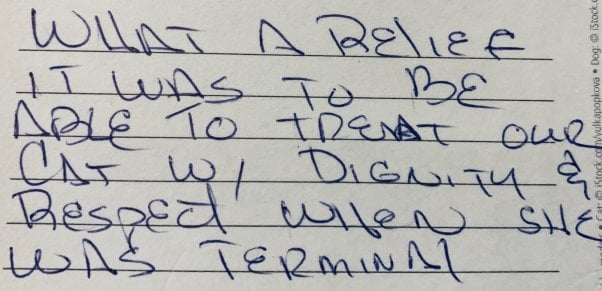 WHAT A RELIEF
IT WAS TO BE
ABLE TO TREAT OUR
CAT W/ DIGNITY &
RESPECT WHEN SHE
WAS TERMINAL
Cat: © iStock.com/yulkapopkova • Dog: © iStock.c